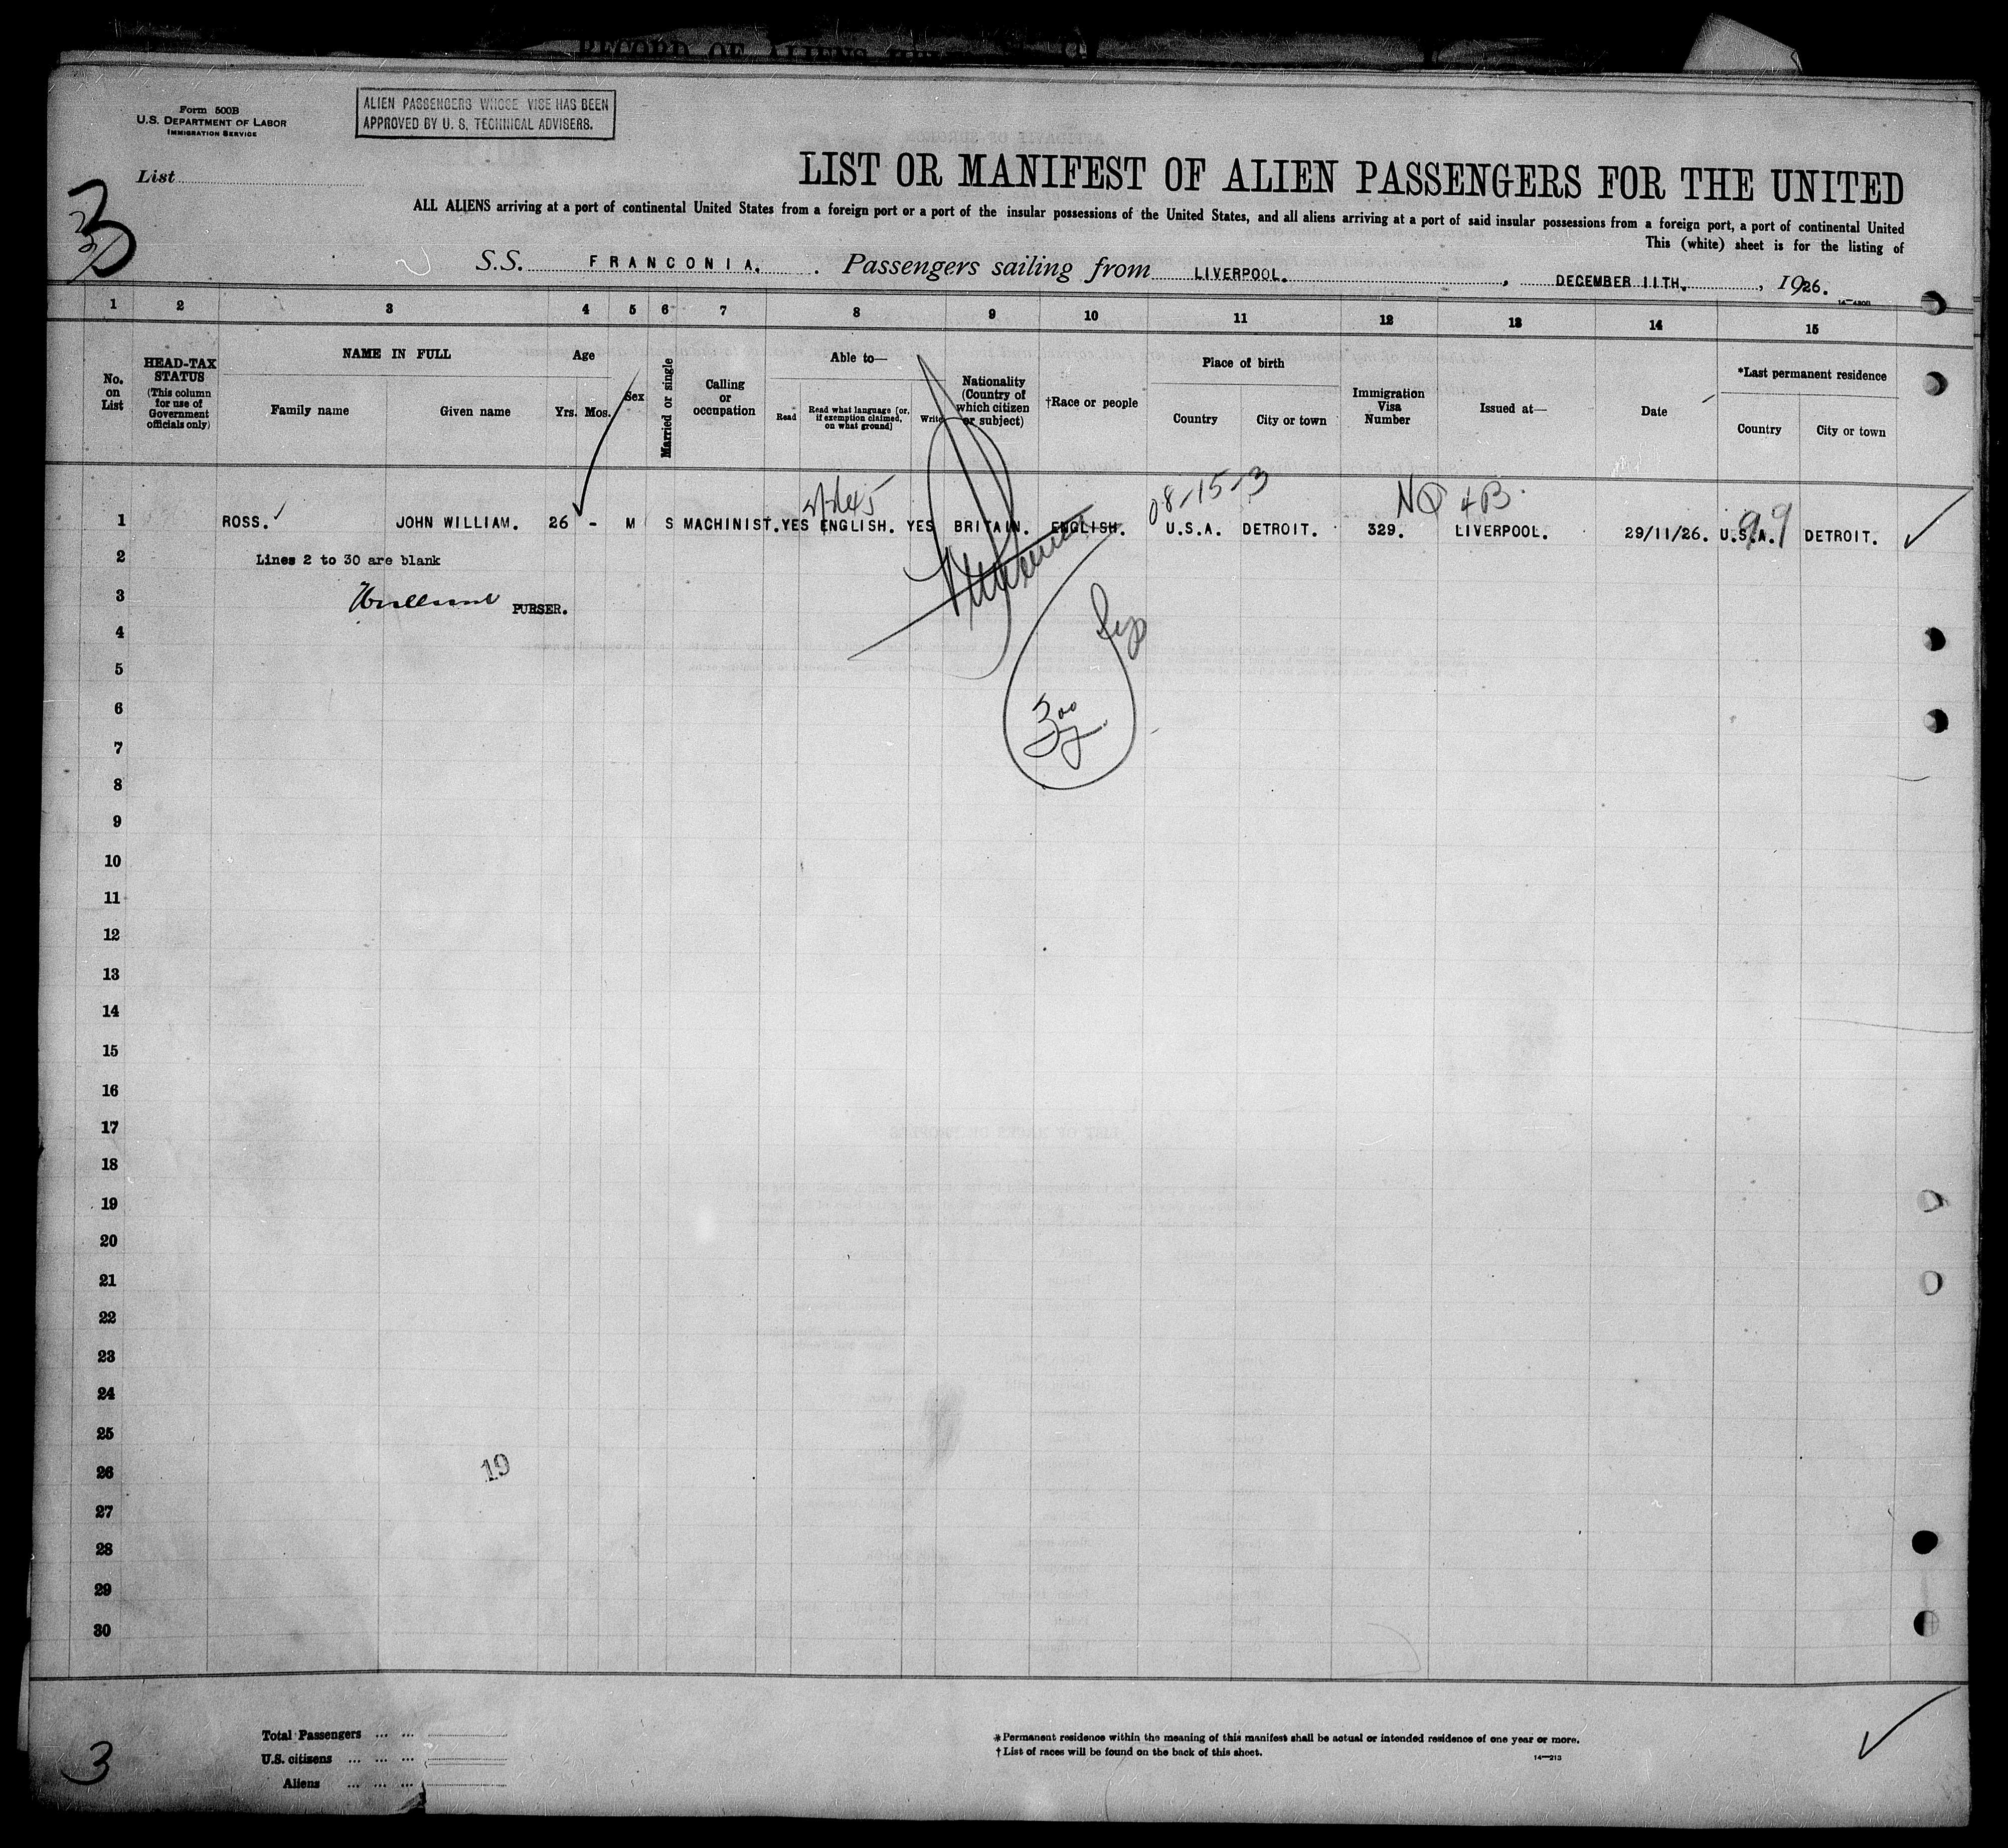 RECORD OF ALIENS
Form 500B
U.S. DEPARTMENT OF LABOR
IMMIGRATION SERVICE
ALIEN PASSENGERS WHOSE VISE HAS BEEN
APPROVED BY U. S. TECHNICAL ADVISERS.
List
3
LIST OR MANIFEST OF ALIEN PASSENGERS FOR THE UNITED
ALL ALIENS arriving at a port of continental United States from a foreign port or a port of the insular possessions of the United States, and all aliens arriving at a port of said insular possessions from a foreign port, a port of continental United
This (white) sheet is for the listing of
S.S. FRANCONIA. Passengers sailing from LIVERPOOL. , DECEMBER 11TH. , 1926.
1 2 3 4 5 6 7 8 9 10 11 12 13 14 15
No. on List
HEAD-TAX STATUS (This column for use of Government officials only)
NAME IN FULL
Family name Given name
Age
Yrs. Mos.
Sex
Married or single
Calling or occupation
Able to—
Read
Read what language [or, if exemption claimed, on what ground]
Write
Nationality (Country of which citizen or subject)
†Race or people
Place of birth
Country City or town
Immigration Visa Number
Issued at—
Date
*Last permanent residence
Country City or town
08-15-3
1 ROSS. JOHN WILLIAM. 26 - M S MACHINIST. YES ENGLISH. YES BRITAIN. ENGLISH. U.S.A. DETROIT. 329. LIVERPOOL. 29/11/26. U.S.A. DETROIT.
99
2 Lines 2 to 30 are blank
3 PURSER.
4
5
6
300
7
8
9
10
11
12
13
14
15
16
17
18
19
20
21
22
23
24
25
26
19
27
28
29
30
Total Passengers ... ...
U.S. citizens ... ... ...
Aliens ... ... ...
3
*Permanent residence within the meaning of this manifest shall be actual or intended residence of one year or more.
†List of races will be found on the back of this sheet.
14—213